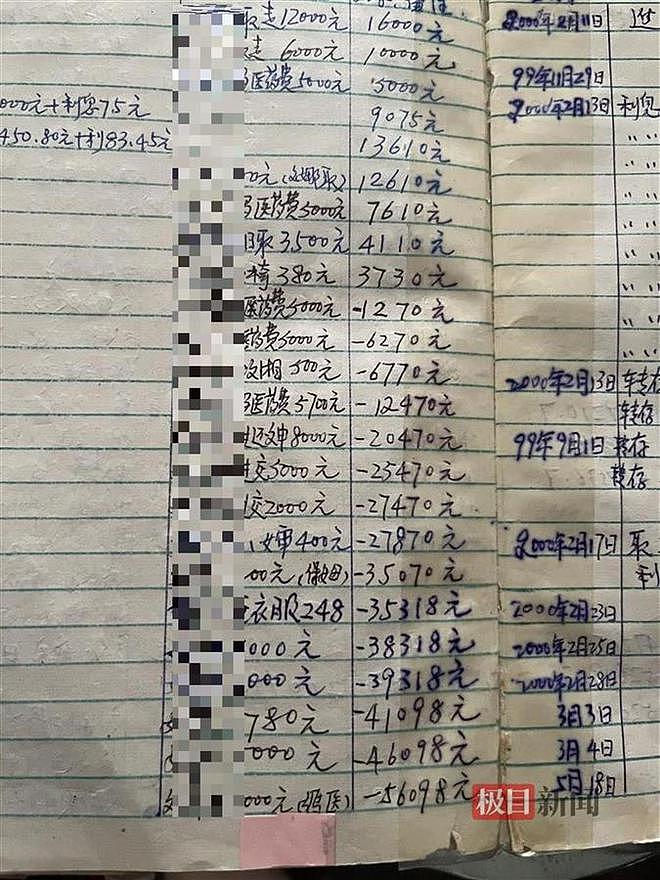 12000元 16000元 2000年2月11日
走 6000元 10000元
医药费5000元 5000元 99年11月29日
000元+利息75元 9075元 2000年2月13日 利息
450.80元+利83.45元 13610元 〃 〃
0元 取) 12610元 〃 〃
医药费5000元 7610元 〃 〃
取3,500元 4110元 〃 〃
椅380元 3730元 〃 〃
医药费5000元 -1270元 〃 〃
药费5000元 -6270元 〃 〃
500元 -6770元 2000年2月13日 转存
医药费5700元 -12470元 转存
8000元 -20470元 99年9月1日 转存
交5000元 -25470元 转存
交2000元 -27470元
女婿400元 -27870元 2000年2月17日 取
00元(保姆) -35070元 利
衣服248 -35318元 2000年2月23日
000元 -38318元 2000年2月25日
000元 -39318元 2000年2月28日
780元 -41098元 3月3日
000元 -46098元 3月4日
000元 -56098元 5月18日
极目新闻